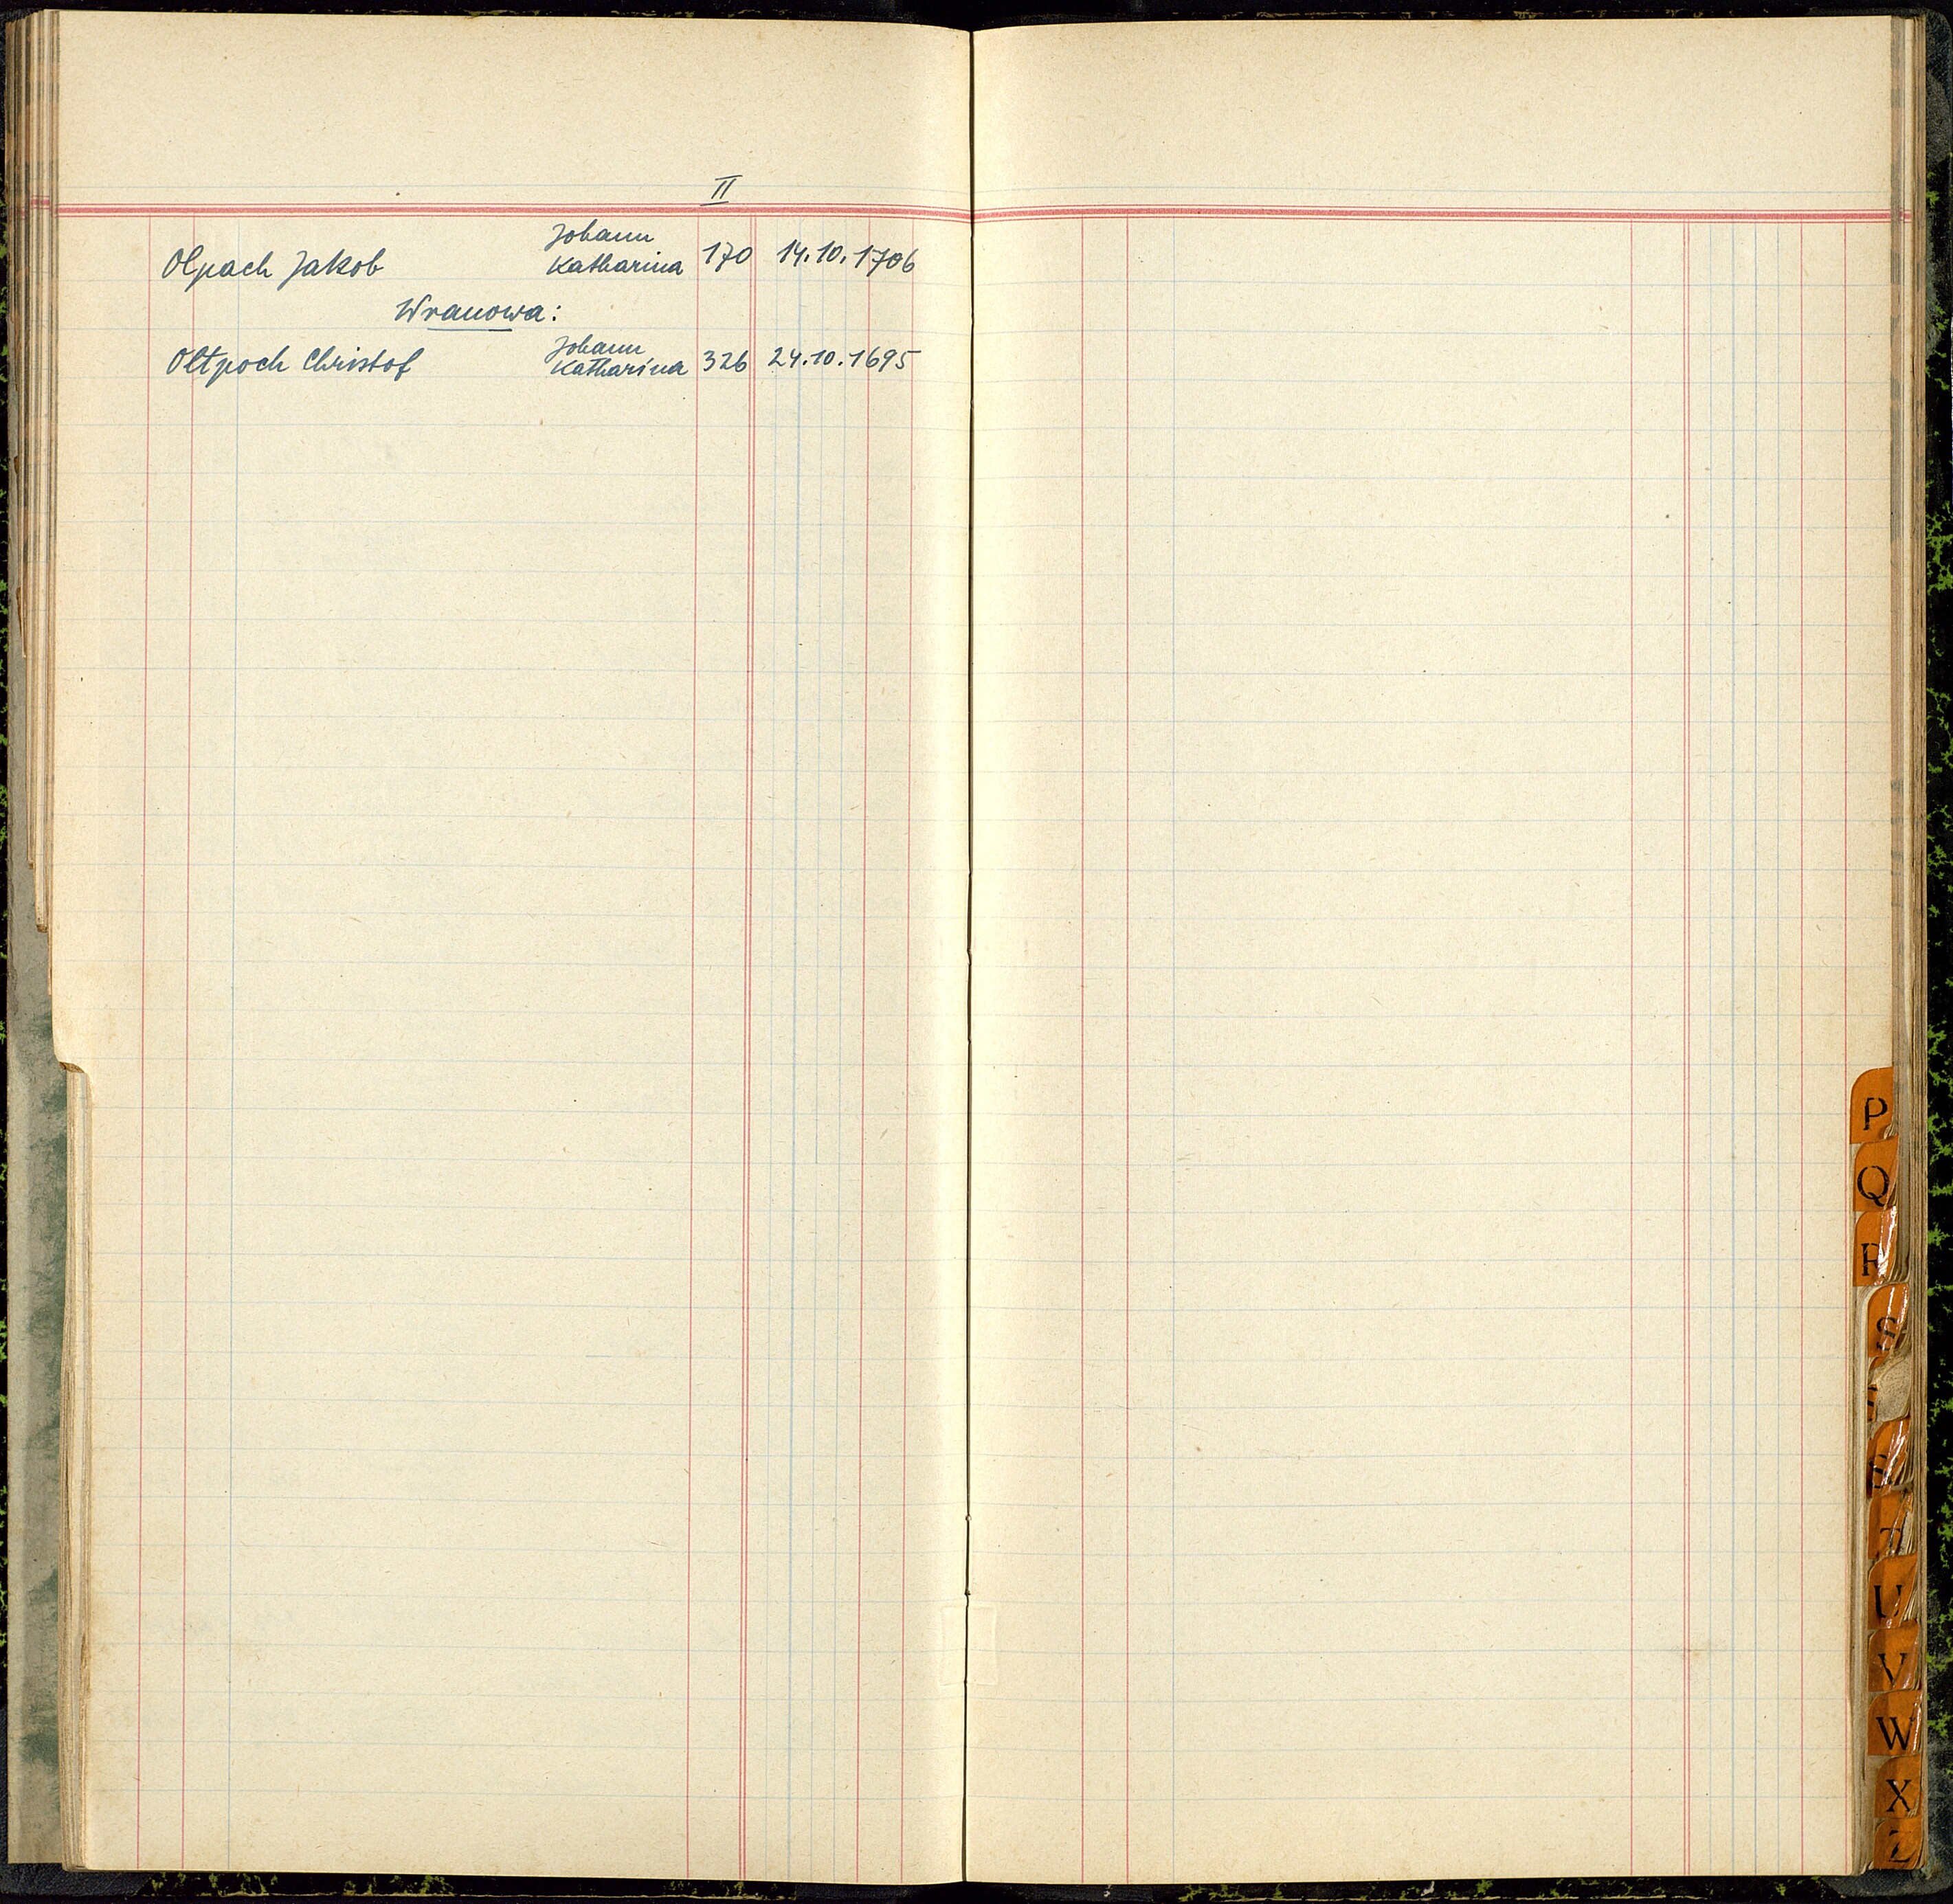 II
Johann
Olpach Jakob Katharina 170 14.10.1706
Wranowa:
Johann
Oltpoch Christof Katharina 326 24.10.1695
P
Q
R
S
T
U
V
W
X
Z